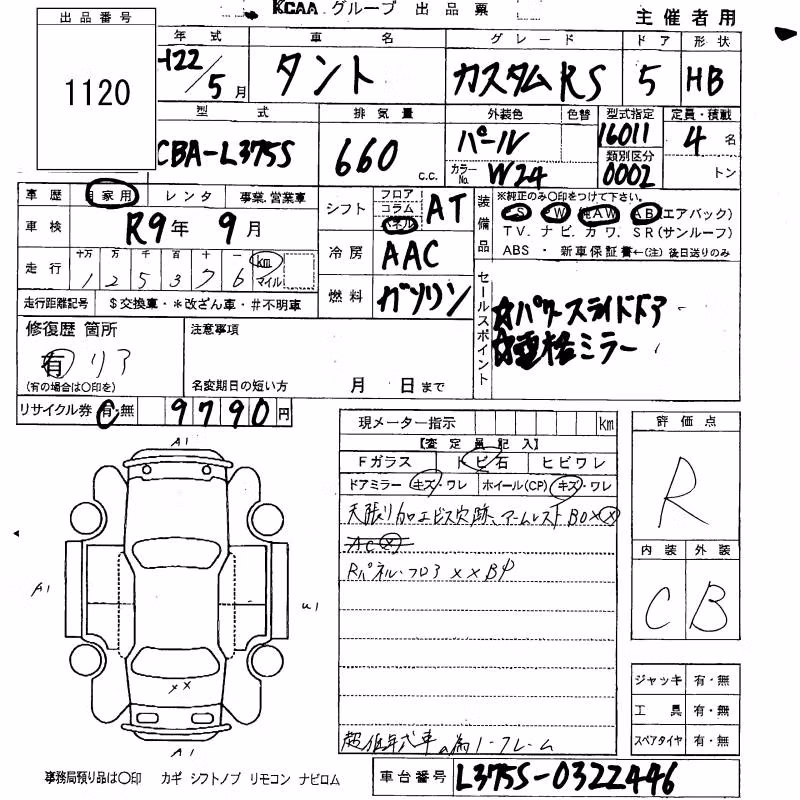 KCAA グループ 出品票
主催者用
出品番号
1120
年式 車名 グレード ドア 形状
H22/5月 タント カスタムRS 5 HB
型式 排気量 外装色 色替 型式指定 定員・積載
CBA-L375S 660 c.c. パール 16011 4名
カラーNo. W24 類別区分 0002 トン
車歴 自家用 レンタ 事業.営業車
車検 R9年 9月
走行 十万 万 千 百 十 一 km マイル
1 2 5 3 7 6
走行距離記号 $交換車・*改ざん車・#不明車
シフト フロア コラム パネル AT
冷房 AAC
燃料 ガソリン
装備品 ※純正のみ○印をつけて下さい。
PS PW 純AW AB(エアバック)
TV. ナビ. カワ. SR(サンルーフ)
ABS ・ 新車保証書←(注) 後日送りのみ
セールスポイント
☆パワースライドドア
☆電格ミラー
修復歴 箇所
有 リア
(有の場合は○印を)
注意事項
名変期日の短い方 月 日まで
リサイクル券 有・無 9790円
現メーター指示 km
【査定員記入】
Fガラス トビ石 ヒビワレ
ドアミラー キズ・ワレ ホイール(CP) キズ・ワレ
天張り加工ビス穴跡、アームレスト BOX Ⓧ
AC Ⓧ
Rパネル・フロア XXBP
超低年式車の為ノークレーム
評価点
R
内装 外装
C B
A1
A1
U1
XX
A1
ジャッキ 有・無
工具 有・無
スペアタイヤ 有・無
事務局預り品は○印 カギ シフトノブ リモコン ナビロム
車台番号 L375S-0322446